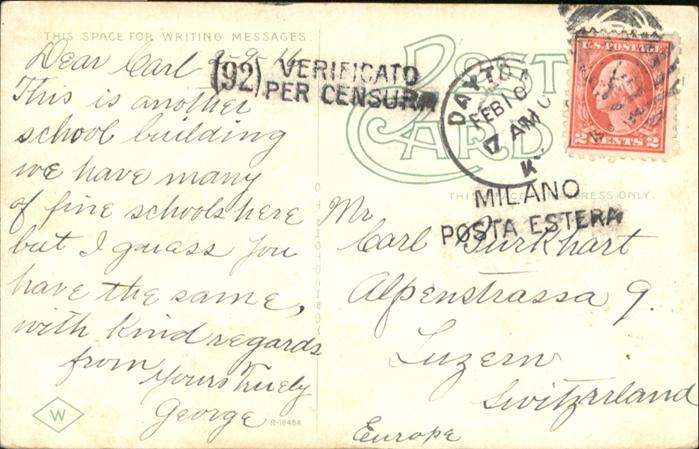 THIS SPACE FOR WRITING MESSAGES
POST CARD
Dear Carl
(92) VERIFICATO
PER CENSURA
This is another
school building
we have many
of fine schools here
but I guass you
have the same,
with kind regards
from
yours truely
George
W
R-18484
DAYTON
FEB 10
AM
U.S. POSTAGE
2 CENTS 2
THIS SPACE FOR ADDRESS ONLY.
MILANO
POSTA ESTERA
Mr
Carl Burkhart
Alpenstrassa 9.
Luzern
Switzrland
Europe